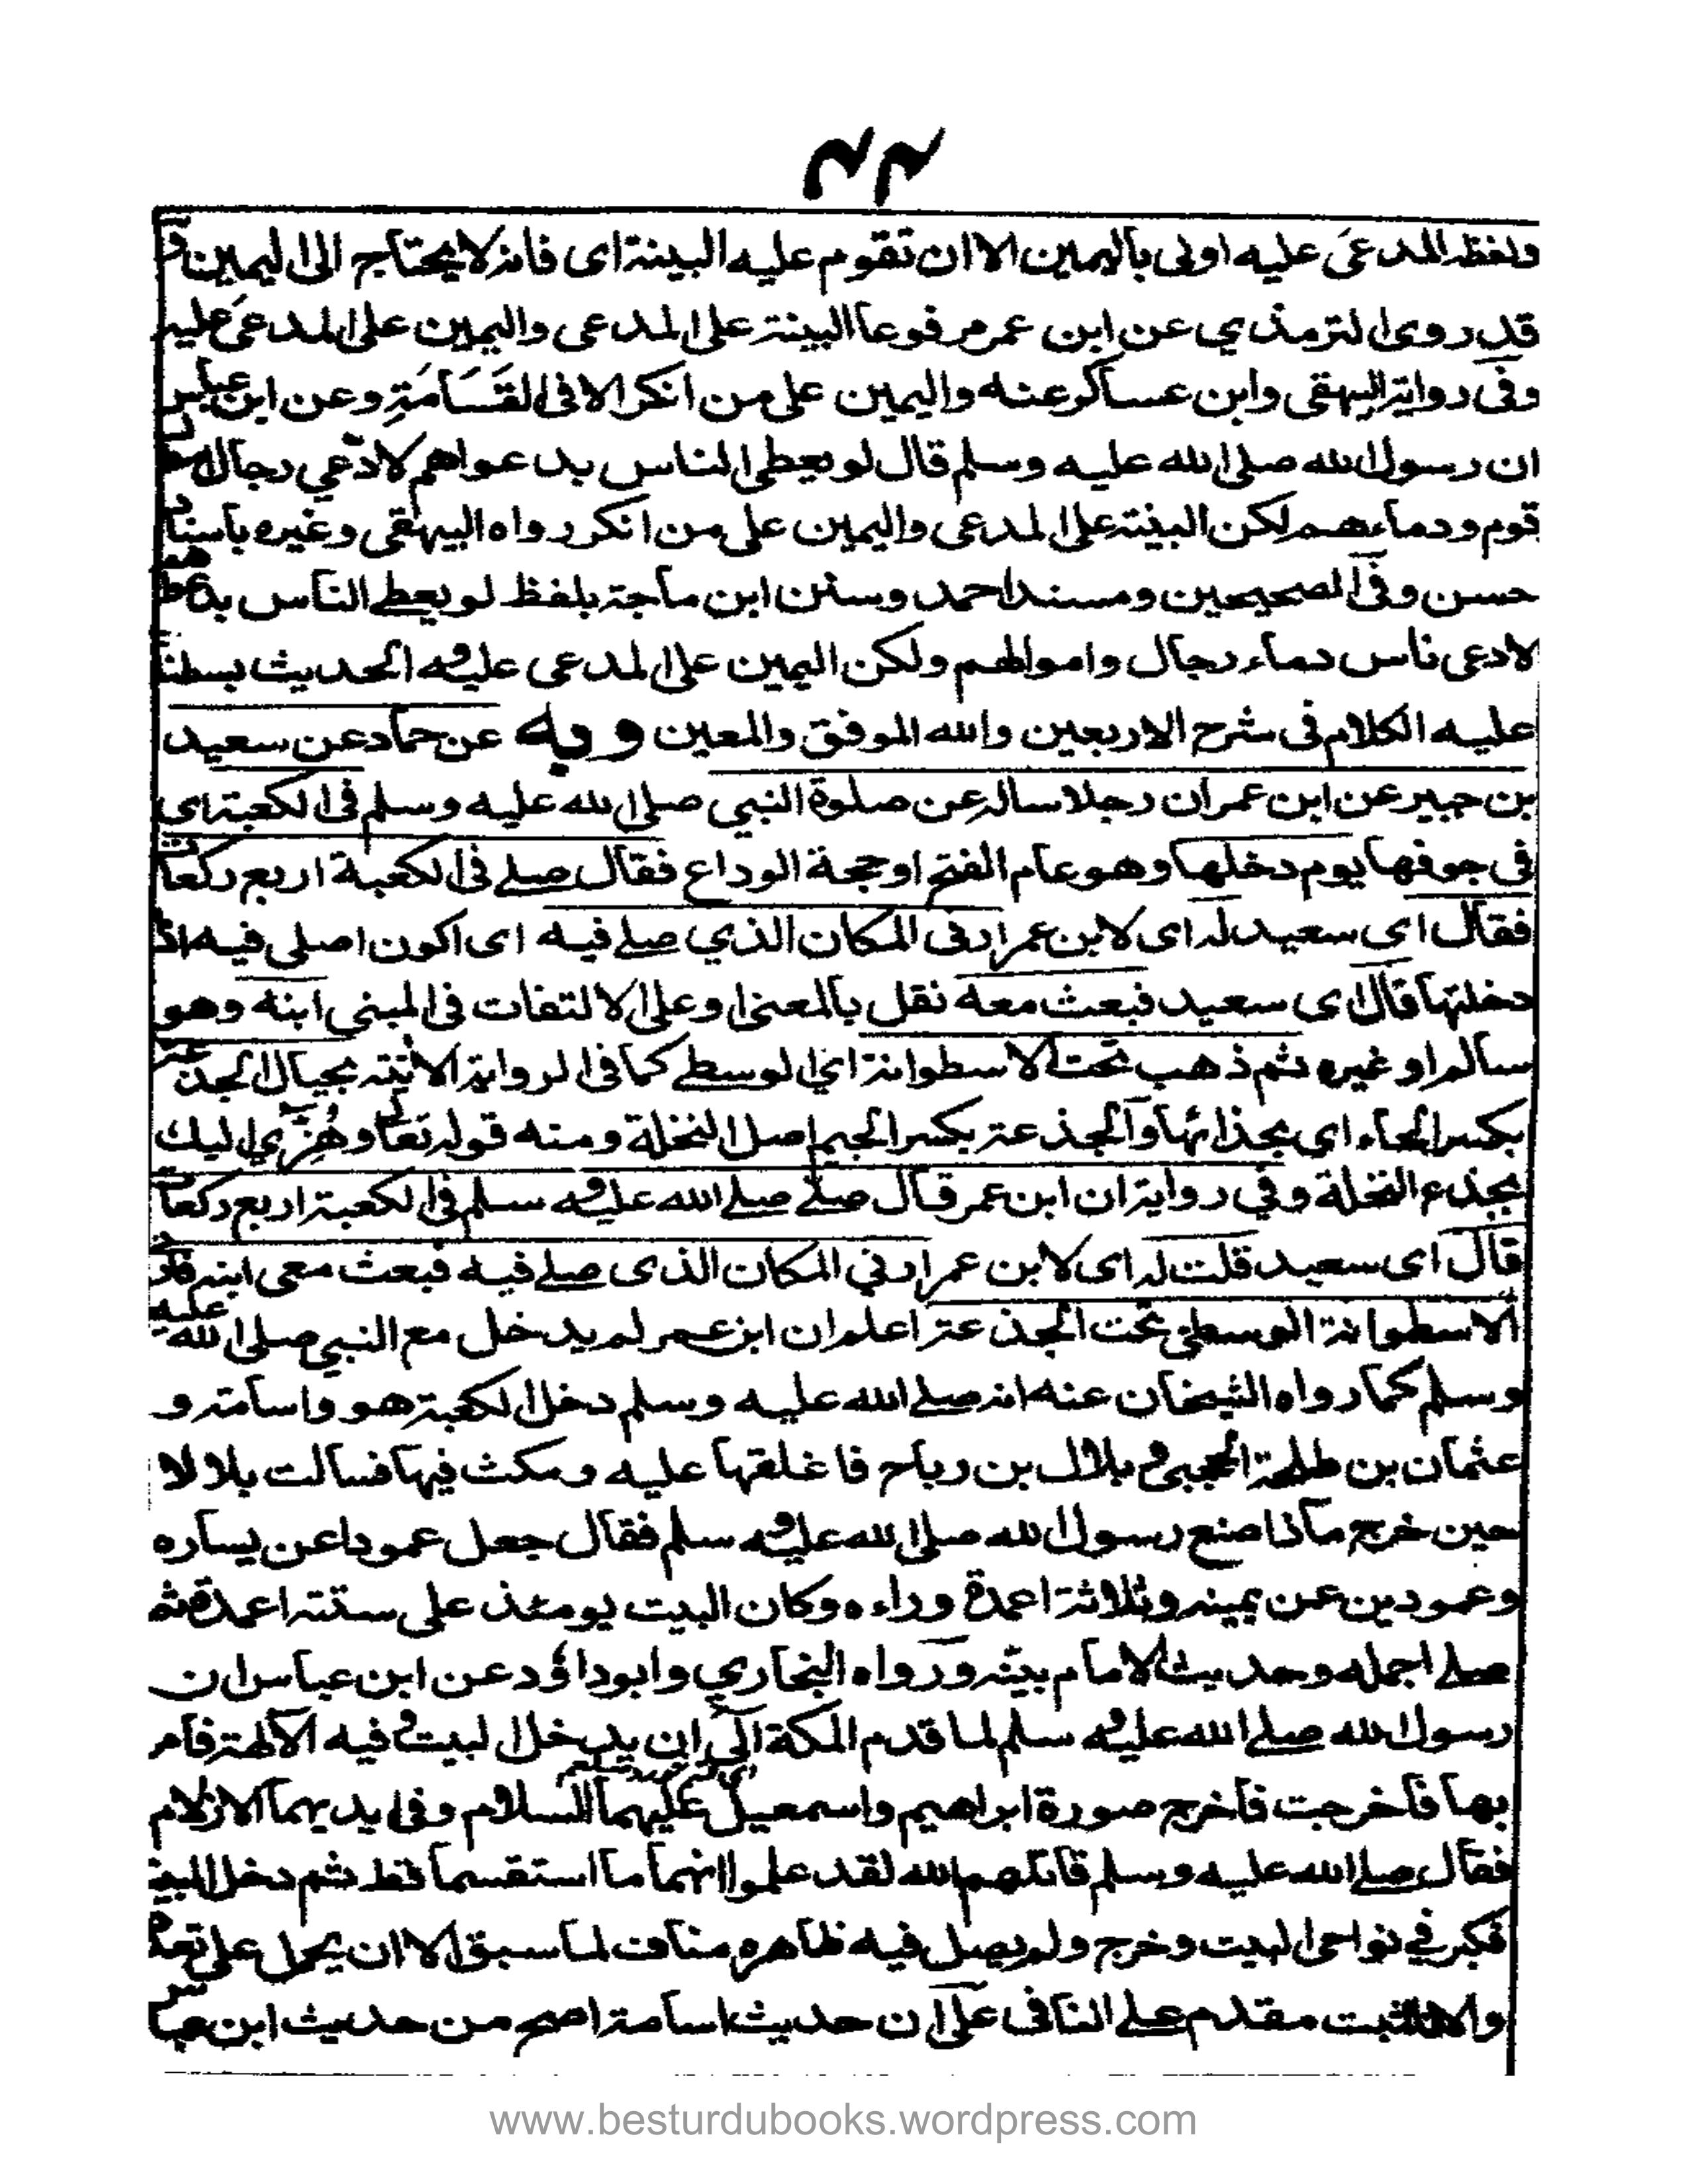 ٤٤
ولفظه المدعى عليه اولى باليمين الا ان تقوم عليه البينة اى فانه لا يحتاج الى اليمين و
قد روى الترمذي عن ابن عمر مرفوعا البينة على المدعى واليمين على المدعى عليه
وفى رواية البيهقى وابن عساكر عنه واليمين على من انكر الا فى القَسَامَةِ وعن ابن عباس
ان رسول الله صلى الله عليه وسلم قال لو يعطى الناس بدعواهم لادّعي رجال
قوم ودماءهم لكن البينة على المدعى واليمين على من انكر رواه البيهقى وغيره باسناد
حسن وفى الصحيحين ومسند احمد وسنن ابن ماجة بلفظ لو يعطے الناس بدعواهم
لادعى ناس دماء رجال واموالهم ولكن اليمين على المدعى عليه و الحديث بسطنا
عليه الكلام فى شرح الاربعين والله الموفق والمعين وبه عن حماد عن سعيد
بن جبير عن ابن عمر ان رجلا ساله عن صلوة النبي صلى الله عليه وسلم فى الكعبة اى
فى جوفها يوم دخلها وهو عام الفتح او حجة الوداع فقال صلے فى الكعبة اربع ركعات
فقال اى سعيد له اى لابن عمر ارنى المكان الذي صلے فيه اى اكون اصلى فيه اذا
دخلتها قال اى سعيد فبعث معه نقل بالمعنى او على الالتفات فى المبنى ابنه وهو
سالم او غيره ثم ذهب تحت الاسطوانة اى الوسطے كما فى الرواية الاتية بحيال الجذعة
بكسر الحاء اى بحذائها والجذعة بكسر الجيم اصل النخلة ومنه قوله تعالى وهُزِّي اليك
بجذع النخلة وفي رواية ان ابن عمر قال صلے صلے الله عليه و سلم فى الكعبة اربع ركعات
قال اى سعيد قلت له اى لابن عمر ارني المكان الذى صلے فيه فبعث معى ابنه
الاسطوانة الوسطى تحت الجذعة اعلم ان ابن عمر لم يدخل مع النبي صلى الله عليه
وسلم كما رواه الشيخان عنه انه صلے الله عليه وسلم دخل الكعبة هو واسامة و
عثمان بن طلحة الحجبى و بلال بن رباح فاغلقها عليه ومكث فيها فسالت بلالا
حين خرج ماذا صنع رسول الله صلى الله عليه و سلم فقال جعل عمودا عن يساره
وعمودين عن يمينه وثلاثة اعمدة وراءه وكان البيت يومئذ على ستة اعمدة ثم
صلے اجمله وحديث الامام بيّنه ورواه البخاري وابوداؤد عن ابن عباس ان
رسول الله صلے الله عليه و سلم لما قدم المكة ابى ان يدخل البيت و فيه الآلهة فامر
بها فاخرجت فاخرج صورة ابراهيم واسمعيل عليهما السلام وفى ايديهما الازلام
فقال صلے الله عليه وسلم قاتلهم الله لقد علموا انهما ما استقسما قط ثم دخل البيت
فكبر في نواحى البيت وخرج ولم يصل فيه ظاهره مناف لما سبق الا ان يحمل على تعدد
والا فالمثبت مقدم علے النافى على ان حديث اسامة اصح من حديث ابن عباس
www.besturdubooks.wordpress.com